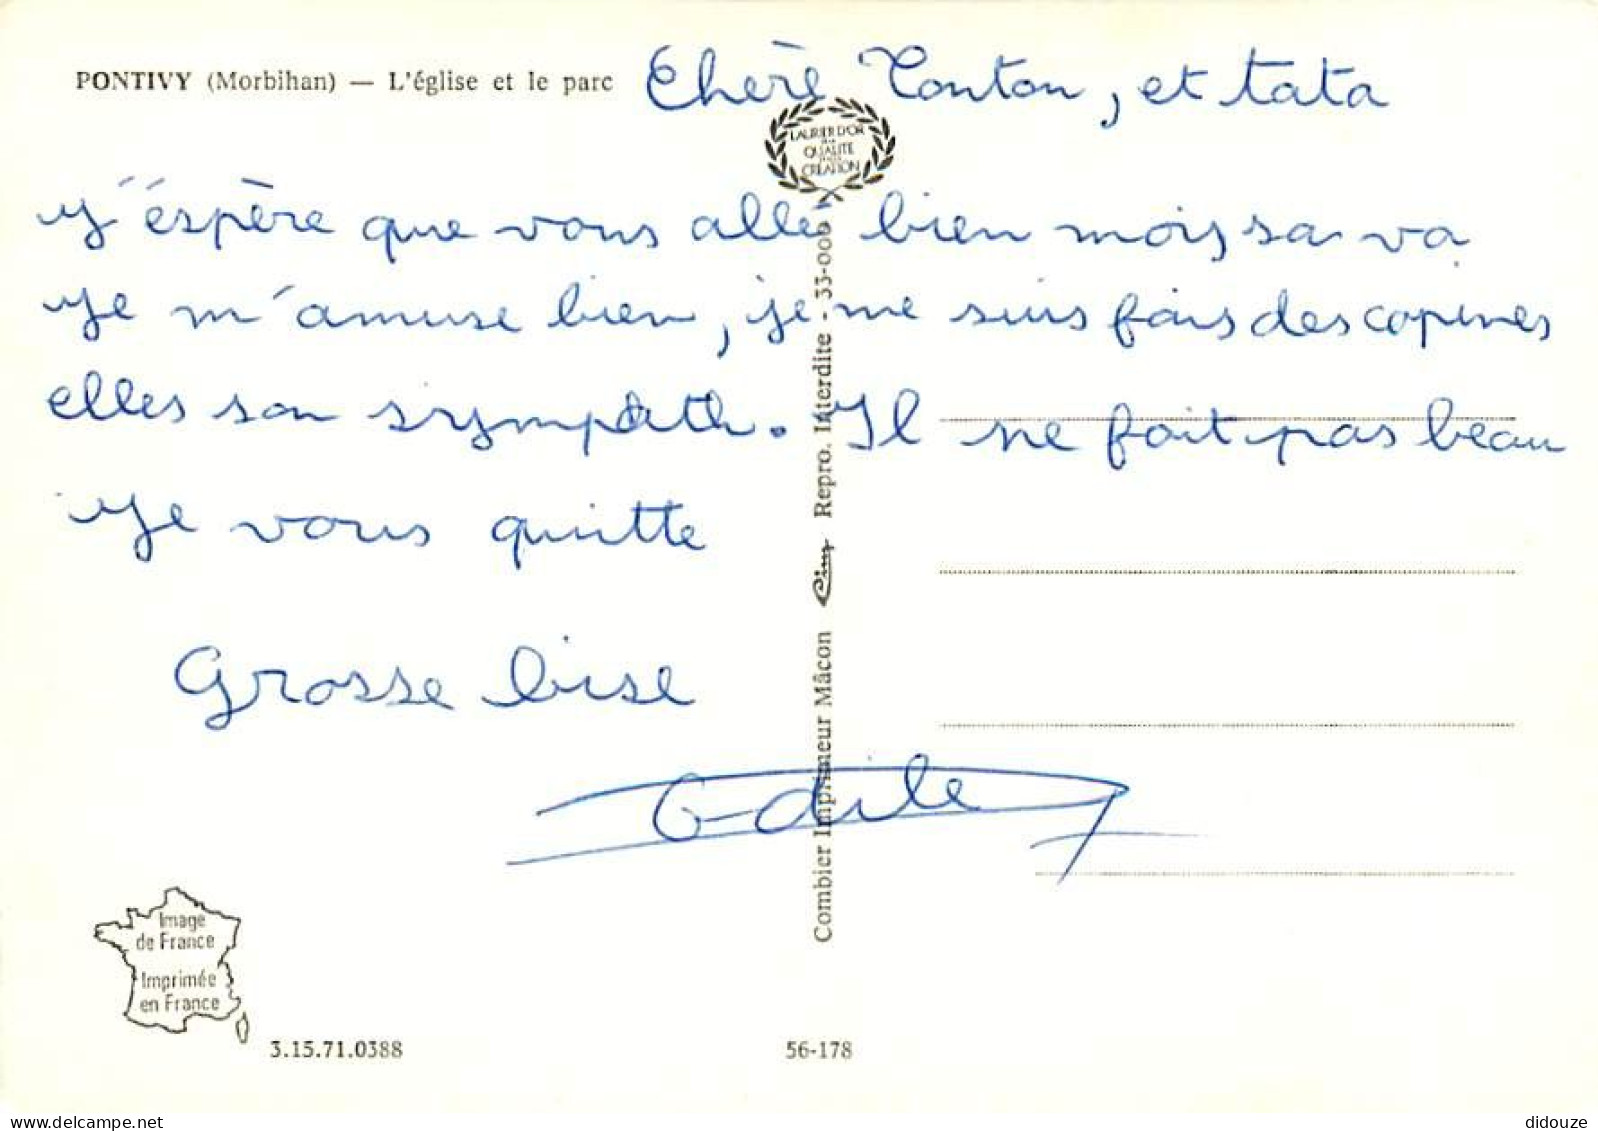 PONTIVY (Morbihan) — L'église et le parc
Cherè Tonton, et tata
LAURIER D'OR
DE LA
QUALITE
CREATION
J'éspère que vous allé bien mois sa va
Je m'amuse bien, je me suis fais des copines
elles son sympath. Il ne fait pas beau
Je vous quitte
Grosse bise
Odile
Combier Imprimeur Mâcon Cim Repro. Interdite - 33-000
Image
de France
Imprimée
en France
3.15.71.0388
56-178
didouze